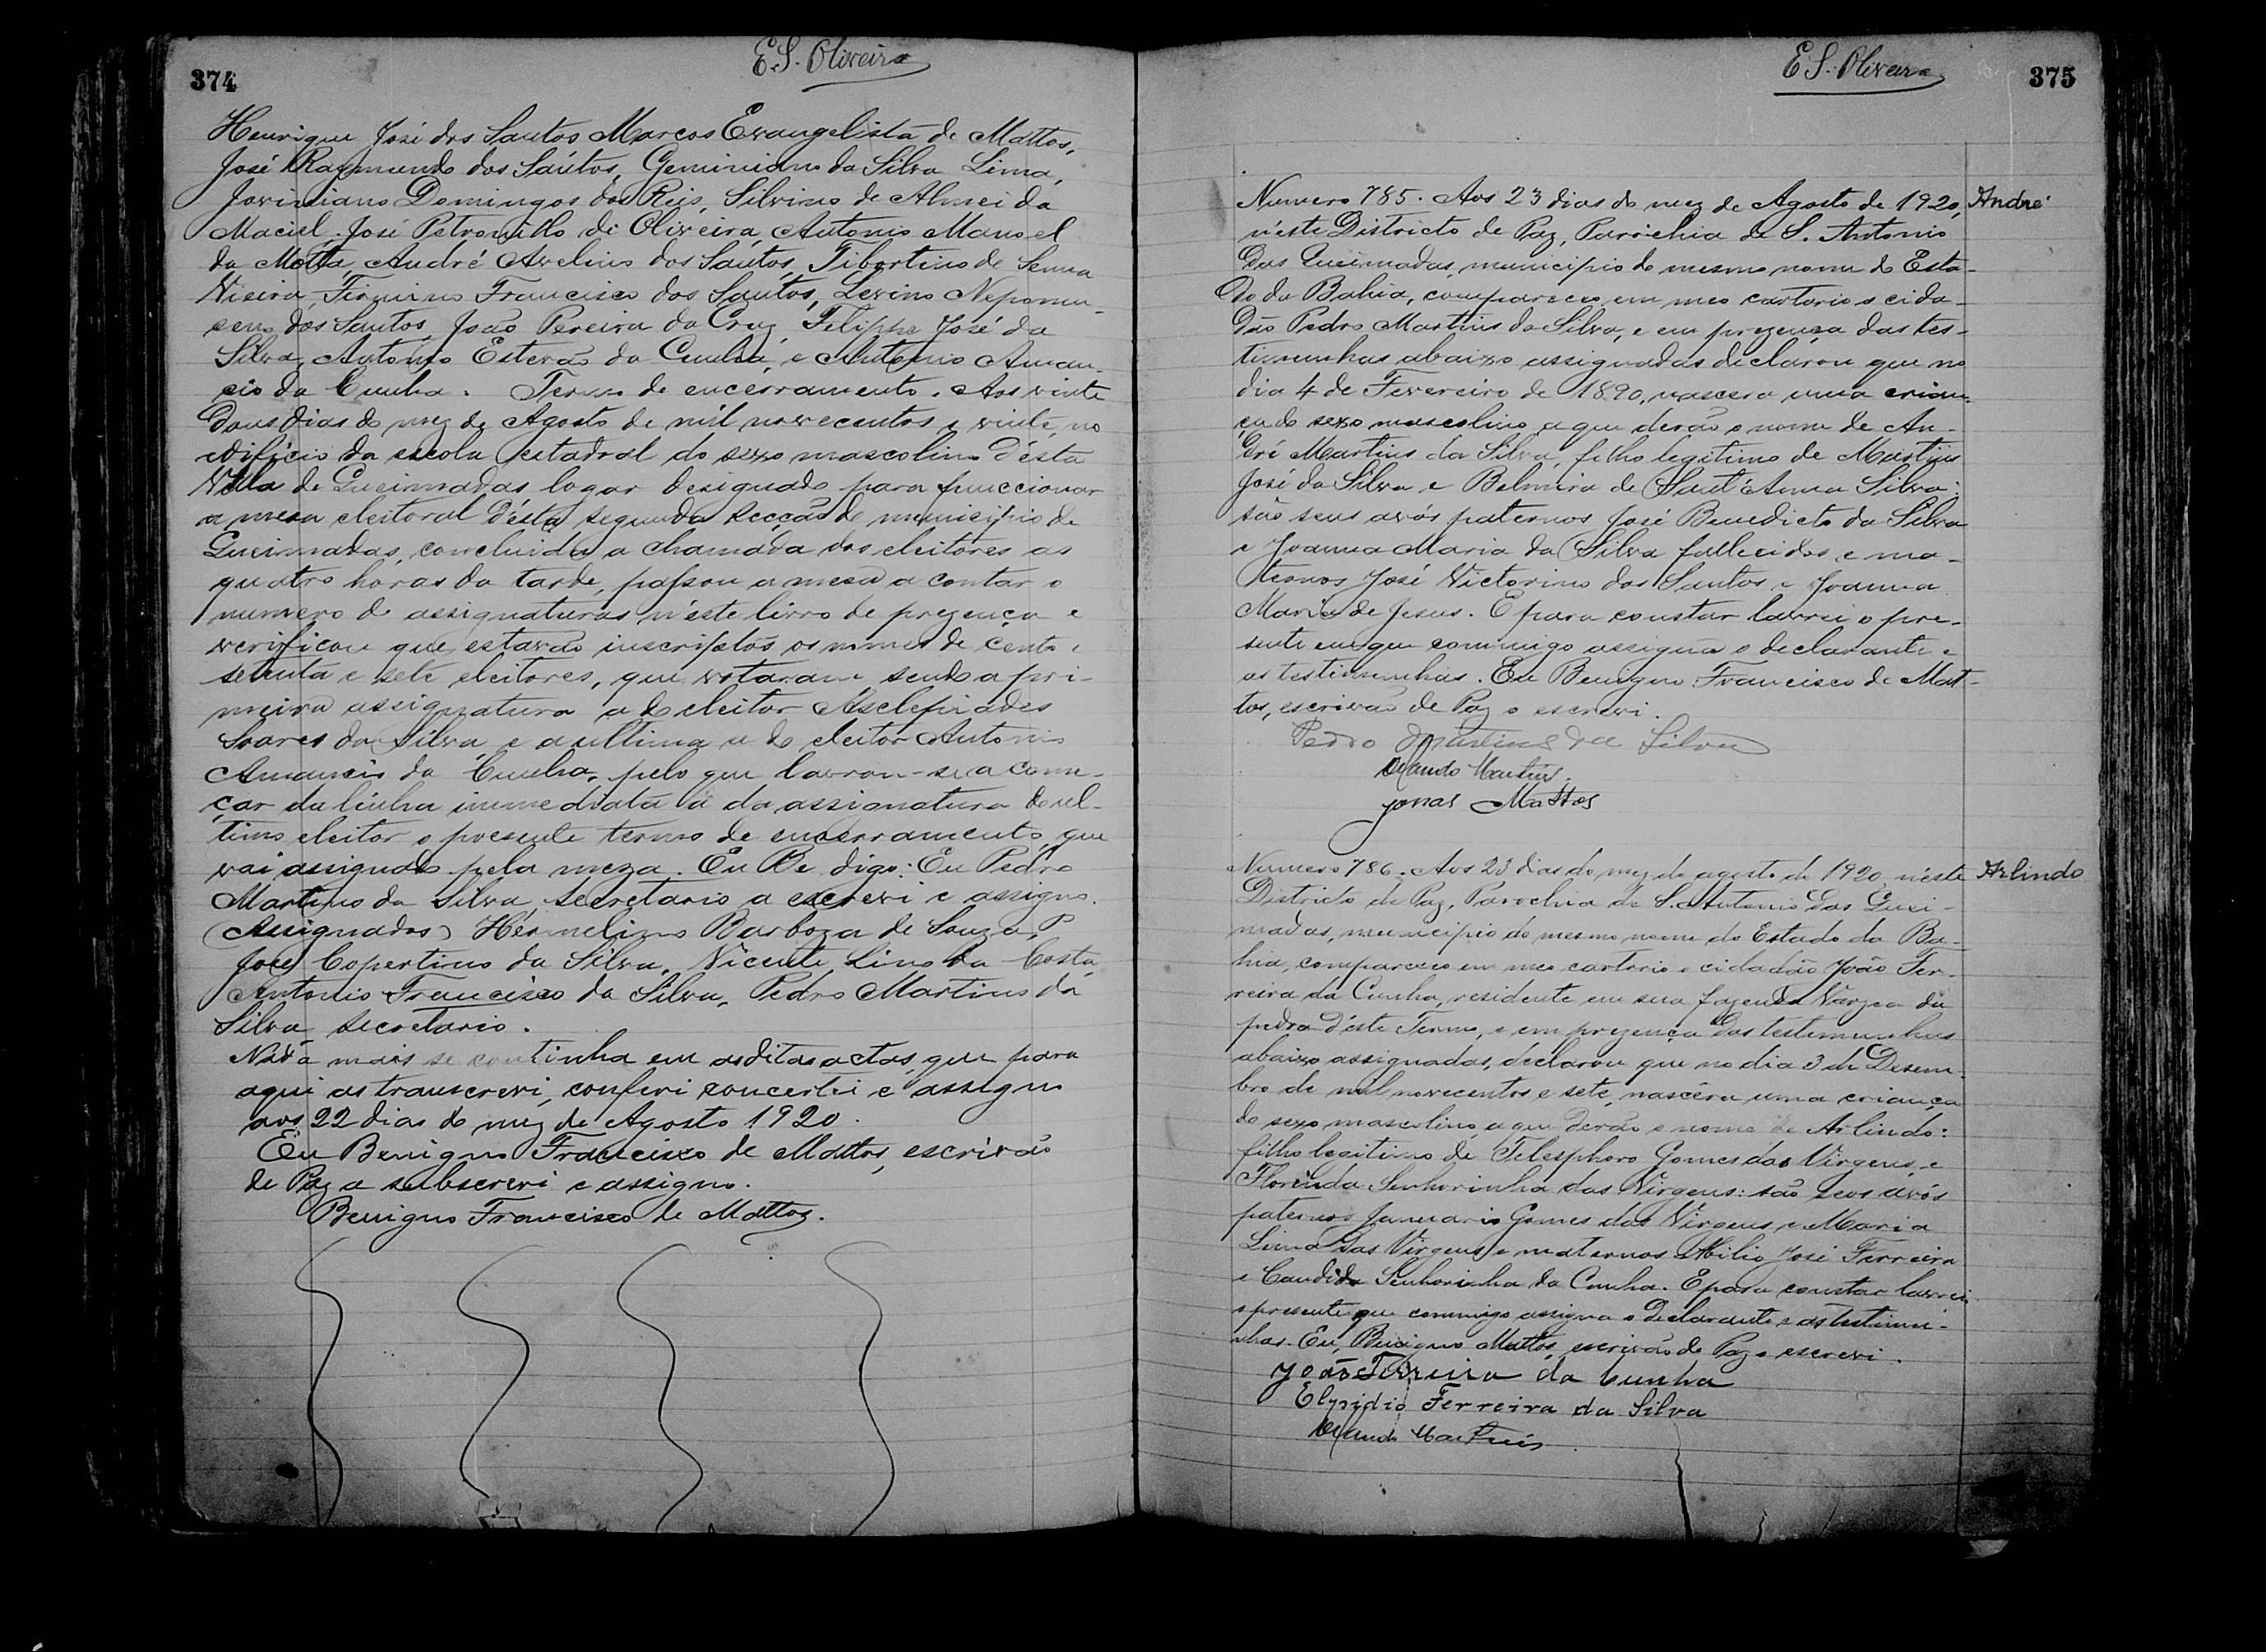 374
E.S. Oliveira
Henrique José dos Santos, Marcos Evangelista de Mattos,
José Raymundo dos Santos, Geminiano da Silva Lima,
Joviniano Domingos dos Reis, Silvino de Almeida
Maciel, José Petronilho de Oliveira, Antonio Manoel
da Motta, André Avelino dos Santos, Tibertino de Senna
Vieira, Firmino Francisco dos Santos, Levino Nepomu-
ceno dos Santos, João Pereira da Cruz, Felippe José da
Silva, Antonio Estevão da Cunha, e Antonio Aman-
cio da Cunha. Termo de encerramento. Aos vinte
dous dias do mez de Agosto de mil novecentos e vinte, no
edificio da escola estadoal do sexo mascolino d'esta
Villa de Queimadas, logar designado para funccionar
a mesa eleitoral d'esta segunda secção do municipio de
Queimadas, concluida a chamada dos eleitores as
quatro horas da tarde, passou a mesa a contar o
numero de assignaturas n'este livro de prezença e
verificou que estavão inscriptos os nomes de cento e
setenta e sete eleitores, que votaram sendo a pri-
meira assignatura a do eleitor Asclepiades
Soares da Silva e a ultima a do eleitor Antonio
Amancio da Cunha, pelo que lavrou-se a come-
çar da linha immediata a da assignatura do ul-
timo eleitor o presente termo de encerramento, que
vai assignado pela meza. Eu Be digo: Eu Pedro
Martins da Silva, secretario a escrevi e assigno.
(Assignados) Hermelino Barboza de Souza, P.
José Copertino da Silva, Vicente Lino da Costa,
Antonio Francisco da Silva, Pedro Martins da
Silva secretario.
Nada mais se continha em as ditas actas, que para
aqui as transcrevi, conferi concertei e assigno
aos 22 dias do mez de Agosto 1920.
Eu Benigno Francisco de Mattos, escrivão
de Paz a subscrevi e assigno.
Benigno Francisco de Mattos.
E.S. Oliveira
375
Numero 785. Aos 23 dias do mez de Agosto de 1920, André
n'este Districto de Paz, Parrichia de S. Antonio
das Queimadas, municipio do mesmo nome do Esta-
do da Bahia, compareceo em meo cartorio o cida-
dão Pedro Martins da Silva, e em prezença das tes-
timunhas abaixo assignadas declarou que no
dia 4 de Fevereiro de 1890, nascera uma crian-
ça do sexo mascolino, a que derão o nome de An-
dré Martins da Silva, filho legitimo de Martins
José da Silva e Belmira de Sant'Anna Silva:
são seus avós paternos José Benedicto da Silva
e Joanna Maria da Silva fallecidos, e ma-
ternos José Victorino dos Santos e Joanna
Maria de Jesus. E para constar lavrei o pre-
sente em que commigo assigna o declarante e
as testimunhas. Eu Benigno Francisco de Mat-
tos, escrivão de Paz o escrevi.
Pedro Martins da Silva
Martins.
Jonas Mattos
Numero 786. Aos 23 dias do mez de agosto de 1920, n'este Arlindo
Districto de Paz, Parochia de S. Antonio das Quei-
madas, municipio do mesmo nome do Estado da Ba-
hia, compareceo em meo cartorio o cidadão João Fer-
reira da Cunha, residente em sua fazenda Varzea da
pedra d'este Termo, e em prezença das testemunhas
abaixo assignadas, declarou que no dia 3 de Desem-
bro de mil novecentos e sete, nascêra uma criança
do sexo mascolino, a que derão o nome de Arlindo:
filho legitimo de Telesphoro Gomes das Virgens, e
Florinda Senhorinha das Virgens: são seos avós
paternos Januario Gomes das Virgens e Maria
Lima das Virgens e maternos Abilio José Ferreira
e Candida Senhorinha da Cunha. E para constar lavrei
o presente que commigo assigna o declarante e as testimu-
nhas. Eu, Benigno Mattos, escrivão de Paz o escrevi.
João Ferreira da Cunha
Elpidio Ferreira da Silva
Martins